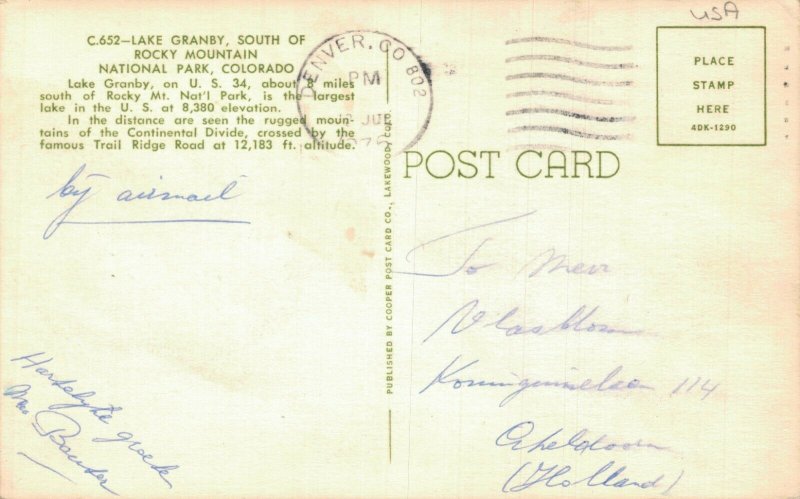 USA
C.652—LAKE GRANBY, SOUTH OF
ROCKY MOUNTAIN
NATIONAL PARK, COLORADO
Lake Granby, on U. S. 34, about 8 miles
south of Rocky Mt. Nat'l Park, is the largest
lake in the U. S. at 8,380 elevation.
In the distance are seen the rugged moun-
tains of the Continental Divide, crossed by the
famous Trail Ridge Road at 12,183 ft. altitude.
DENVER, CO 802
PM
PLACE
STAMP
HERE
4DK-1290
POST CARD
PUBLISHED BY COOPER POST CARD CO., LAKEWOOD, COLO.
by airmail
To Mevr
Vlasblom
114
Apeldoorn
(Holland)
Hartelyke groeten